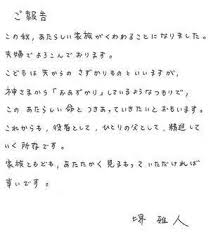 ご報告
この秋、あたらしい家族がくわわることになりました。
夫婦でよろこんでおります。
こどもは天からのさずかりものといいますが、
神さまから「おあずかり」しているようなつもりで、
このあたらしい命とつきあっていきたいとおもいます。
これからも、役者として、ひとりの父として、精進して
いく所存です。
家族ともども、あたたかく見まもっていただければ
幸いです。
堺 雅人